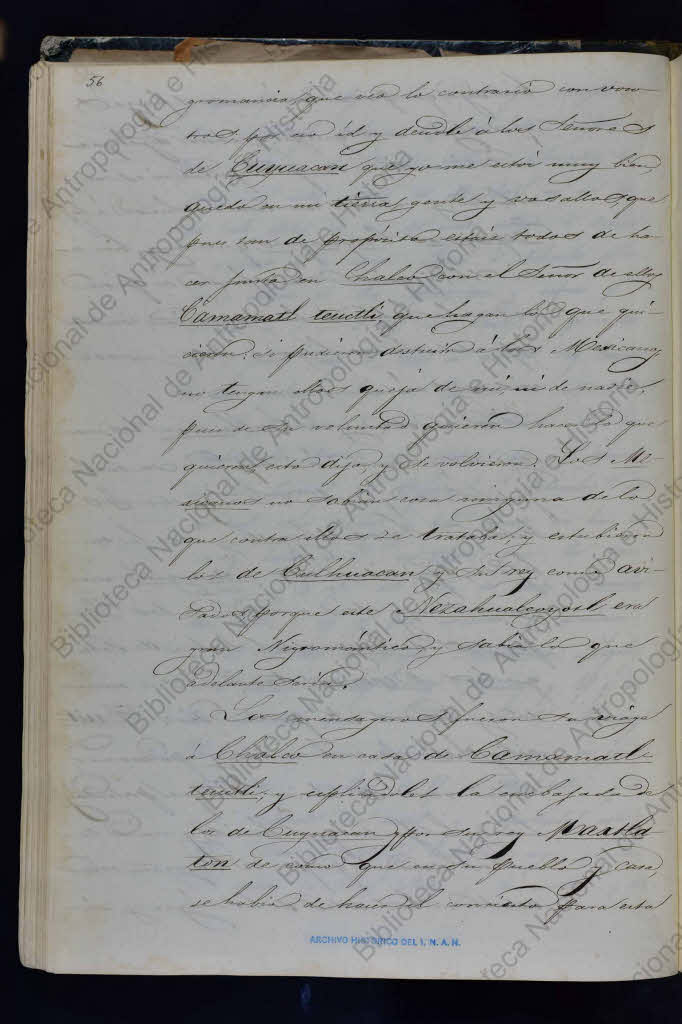 56
gromancia, que veo lo contrario con voso-
tros, por eso id y decidle á los Señores
de Cuyuacan que yo me estoi muy bien
quedo en mi tierra, gente y vasallos, que
pues tan de propósito estais todos de ha-
cer junta en Chalco con el Señor de ellos
Camamatl teuctli, que hagan lo que qui-
cieren: si pudieren destruir á los Mexicanos,
no tengan ellos queja de mí, ni de nadie,
pues de su voluntad quieren hacer lo que
quieren esto dijo, y se volvieron. Los Me-
xicanos no sabian cosa ninguna de lo
que contra ellos se trataba, y estubieron
los de Culhuacan y su rey como avi-
sados, porque este Nezahualcoyotl era
gran Nigromántico, y sabia lo que
adelante seria.
Los mensageros fueron su viage
á Chalco en casa de Camamatl-
teuctli, y esplicándoles la embajada de
los de Cuyuacan, y por su rey Maxtla
ton de como que en su pueblo y casa,
se habia de hacer el concierto para esta
ARCHIVO HISTORICO DEL I. N. A. H.
Biblioteca Nacional de Antropología e Historia